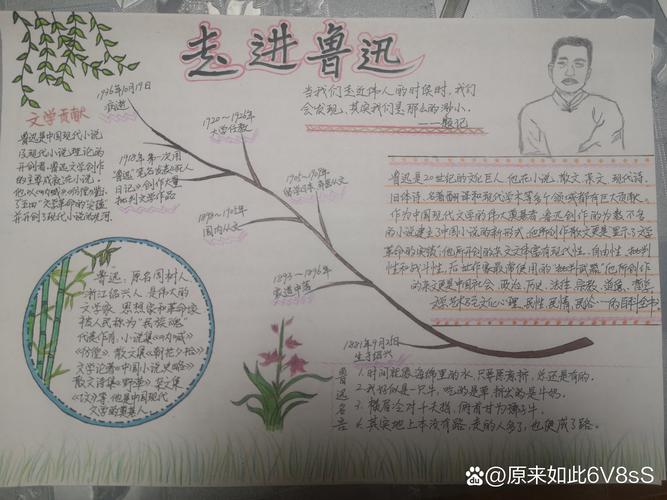 走进鲁迅
当我们走近伟人的时候时,我们
会发现,其实我们是那么的渺小。
——题记
1936年10月19日
病逝
1920~1926年
大学任教
1918年,第一次用
鲁迅笔名发表《狂人
日记》创作大量
批判文学作品
1902~1909年
1898~1902年
国内从文
1893~1896年
家道中落
1881年9月25日
生于绍兴
文学贡献
鲁迅是中国现代小说
及现代小说理论的
开创者,鲁迅文学创作
的主要成就是小说,
鲁迅:原名周树人,
浙江绍兴人,是伟大的
文学家 思想家和革命家
被人民称为"民族魂"
代表作有,小说集《呐喊》
《彷徨》散文集《朝花夕拾》
文学论著《中国小说史略》
散文诗集《野草》杂文集
《坟》等,他是中国现代
文学的奠基人
鲁迅是20世纪的文化巨人,他在小说、散文、杂文、现代诗、
旧体诗、名著翻译和现代学术等多个领域都有巨大贡献。
作为中国现代文学的伟大奠基者,鲁迅创作的为数不多
的小说建立了中国小说的新形式;他所创作散文更是"显示了文学
革命的实绩";他所开创的杂文文体富有现代性、自由性、批判
性和战斗性,后世作家最常使用的"批判武器"他所创作
的杂文更是中国社会、政治、历史、法律、宗教、道德、哲学、
文学、艺术乃至文化心理、民性、民情、民俗……的百科全书
鲁迅名言
1.时间就像海绵里的水,只要愿意挤,总还是有的。
2.我好似一只牛,吃的是草,挤出的是牛奶。
3.横眉冷对千夫指,俯首甘为孺子牛。
4.其实地上本没有路,走的人多了,也便成了路。
Bai百科@原来如此6V8sS